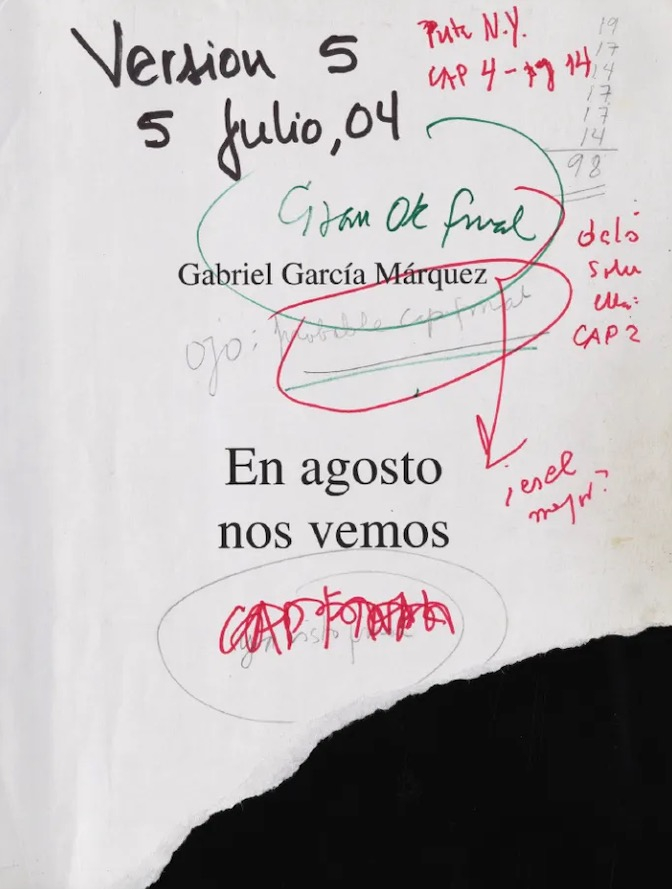 Version 5
5 Julio, 04
N.Y.
CAP 4 - pg 14
19
17
14
17
17
14
98
Gran OK final
Gabriel García Márquez
ojo: probable cap final
solo
CAP 2
En agosto
nos vemos
¿es el
mejor?
CAP